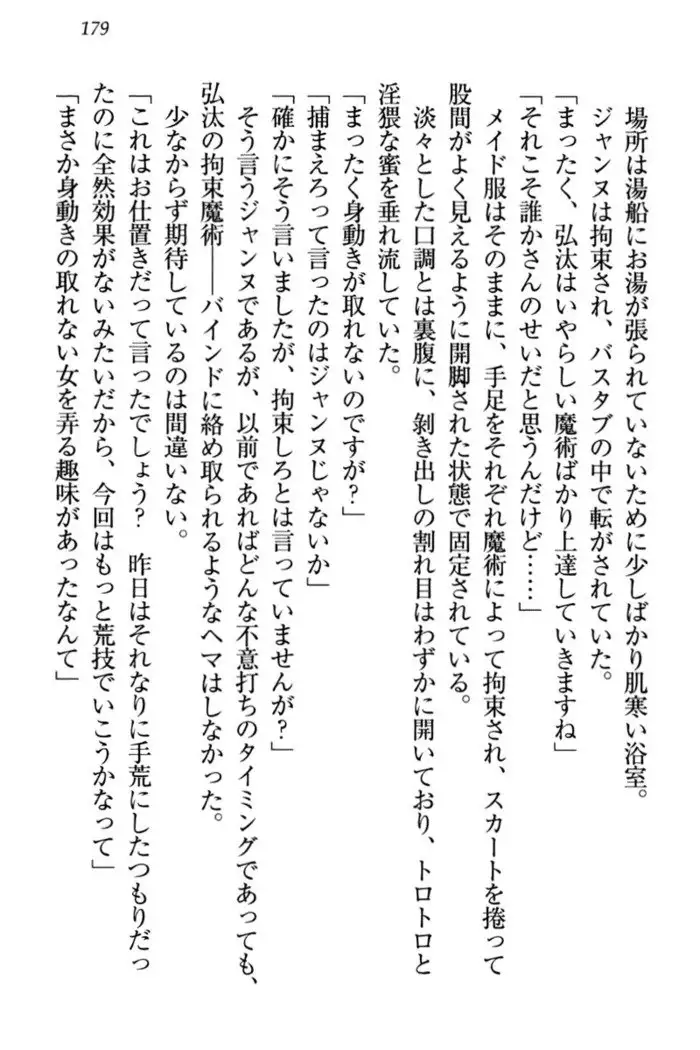 179
場所は湯船にお湯が張られていないために少しばかり肌寒い浴室。
ジャンヌは拘束され、バスタブの中で転がされていた。
「まったく、弘汰はいやらしい魔術ばかり上達していきますね」
「それこそ誰かさんのせいだと思うんだけど……」
メイド服はそのままに、手足をそれぞれ魔術によって拘束され、スカートを捲って
股間がよく見えるように開脚された状態で固定されている。
淡々とした口調とは裏腹に、剝き出しの割れ目はわずかに開いており、トロトロと
淫猥な蜜を垂れ流していた。
「まったく身動きが取れないのですが？」
「捕まえろって言ったのはジャンヌじゃないか」
「確かにそう言いましたが、拘束しろとは言っていませんが？」
そう言うジャンヌであるが、以前であればどんな不意打ちのタイミングであっても、
弘汰の拘束魔術――バインドに絡め取られるようなヘマはしなかった。
少なからず期待しているのは間違いない。
「これはお仕置きだって言ったでしょう？　昨日はそれなりに手荒にしたつもりだっ
たのに全然効果がないみたいだから、今回はもっと荒技でいこうかなって」
「まさか身動きの取れない女を弄る趣味があったなんて」